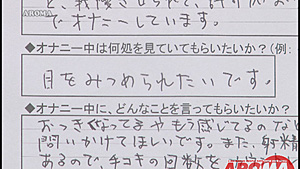 AROMA
と、我慢させられて、許可が
でオナニーしています。
◆オナニー中は何処を見ていてもらいたいか？(例:
目をみつめられたいです。
◆オナニー中に、どんなことを言ってもらいたいか？
おっきくなってるや もう感じてるの など
問いかけてほしいです。また、射精
あるので、手コキの回数を
AROMA